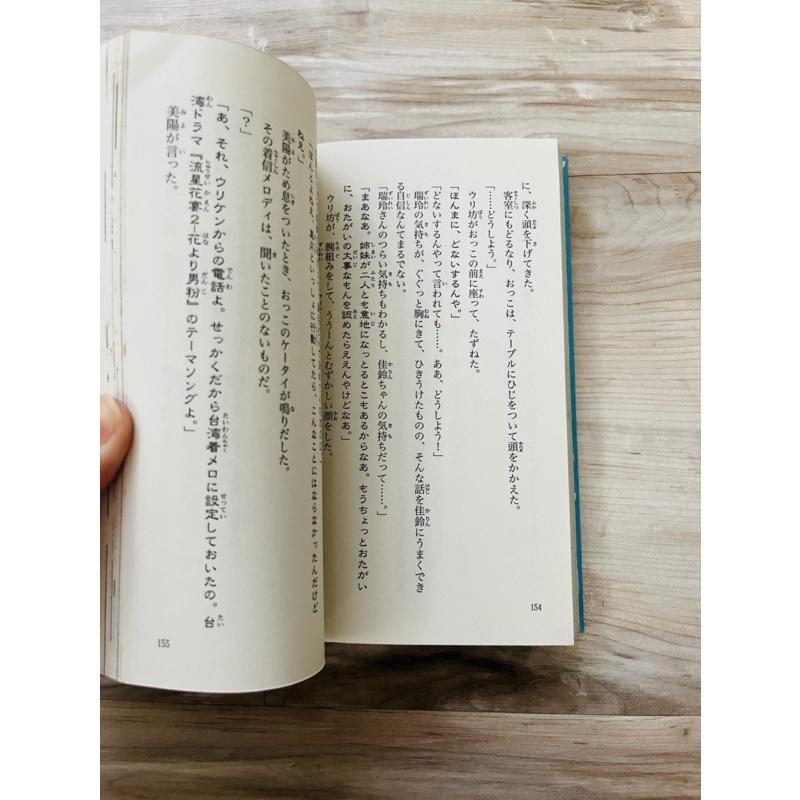 に、深く頭を下げてきた。
客室にもどるなり、おっこは、テーブルにひじをついて頭をかかえた。
「……どうしよう。」
ウリ坊がおっこの前に座って、たずねた。
「ほんまに、どないするんや。」
「どないするんやって言われても……。ああ、どうしよう！」
瑞玲の気持ちが、ぐぐっと胸にきて、ひきうけたものの、そんな話を佳鈴にうまくでき
る自信なんてまるでない。
「瑞玲さんのつらい気持ちもわかるし、佳鈴ちゃんの気持ちだって……。」
「まあなあ。姉妹が二人とも意地になっとるとこもあるからなあ。もうちょっとおたがい
に、おたがいの大事なもんを認めたらええんやけどなあ。」
ウリ坊が、腕組みをして、ううーんとむずかしい顔をした。
154
「ほんとよねえ。いっしょに行動してたら、こんなことにはならなかったんだけど
ねえ。」
美陽がため息をついたとき、おっこのケータイが鳴りだした。
その着信メロディは、聞いたことのないものだ。
「？」
「あ、それ、ウリケンからの電話よ。せっかくだから台湾着メロに設定しておいたの。台
湾ドラマ『流星花宴2―花より男粉』のテーマソングよ。」
美陽が言った。
155